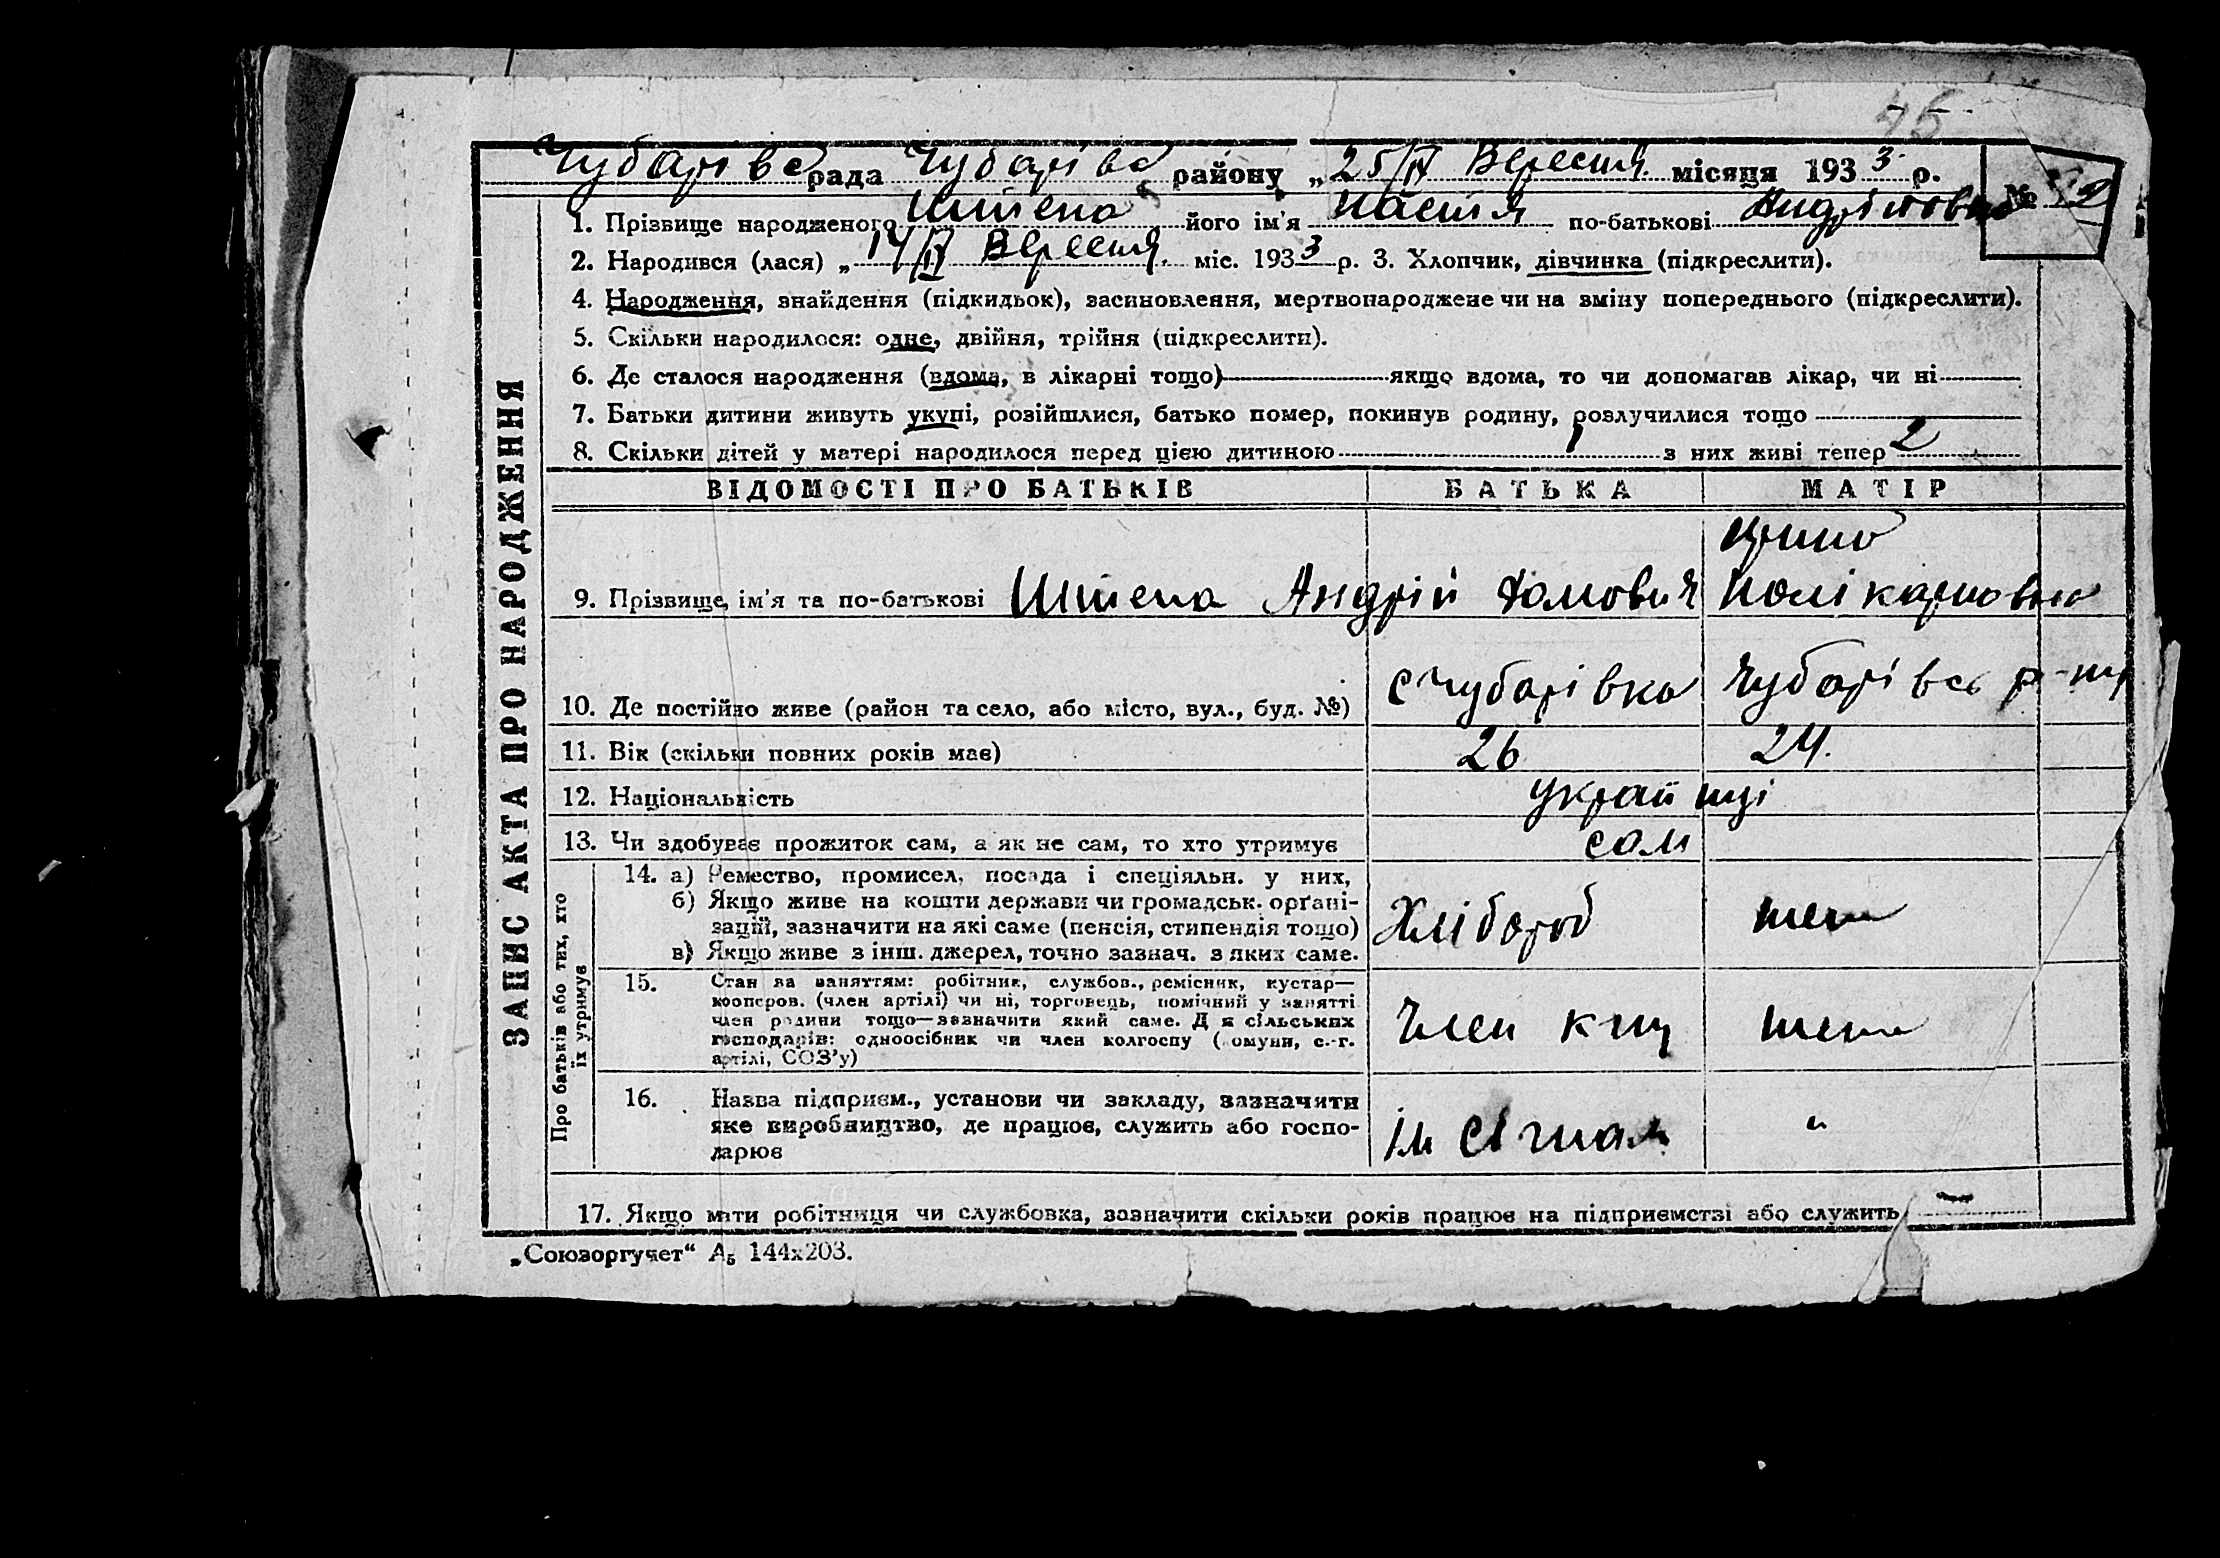 45
Чубарівс рада Чубарівс району „25/IX Вересня місяця 1933 р.
№
1. Прізвище народженого Штепа його ім'я Настя по-батькові Андріївна
2. Народився (лася) „14/IX Вересня. міс. 1933 р. 3. Хлопчик, дівчинка (підкреслити).
4. Народження, знайдення (підкидьок), засиновлення, мертвонароджене чи на зміну попереднього (підкреслити).
5. Скільки народилося: одне, двійня, трійня (підкреслити).
6. Де сталося народження (вдома, в лікарні тощо) якщо вдома, то чи допомагав лікар, чи ні
7. Батьки дитини живуть укупі, розійшлися, батько помер, покинув родину, розлучилися тощо
8. Скільки дітей у матері народилося перед цією дитиною 1 з них живі тепер 2
ЗАПИС АКТА ПРО НАРОДЖЕННЯ
ВІДОМОСТІ ПРО БАТЬКІВ БАТЬКА МАТІР
9. Прізвище, ім'я та по-батькові Штепа Андрій Хомович
Полікарповна
10. Де постійно живе (район та село, або місто, вул., буд. №) с Чубарівка Чубарівсь р-ну
11. Вік (скільки повних років має) 26 24.
12. Національність українці
13. Чи здобуває прожиток сам, а як не сам, то хто утримує сам
Про батьків або тих, хто
їх утримує
14. а) Ремество, промисел, посада і спеціяльн. у них,
б) Якщо живе на кошти держави чи громадськ. органі-
зацій, зазначити на які саме (пенсія, стипендія тощо)
в) Якщо живе з інш. джерел, точно зазнач. з яких саме.
Хлібороб теж
15. Стан за заняттям: робітник, службов., ремісник, кустар—
кооперов. (член артілі) чи ні, торговець, помічний у занятті
член родини тощо—зазначити який саме. Д я сільських
господарів: одноосібник чи член колгоспу ( омуни, с.-г.
артілі, СОЗ'у)
Член теж
16. Назва підприєм., установи чи закладу, зазначити
яке виробництво, де працює, служить або госпо-
дарює
ім "
17. Якщо мати робітниця чи службовка, зазначити скільки років працює на підприємстві або служить
„Союзоргучет“ А5 144х203.